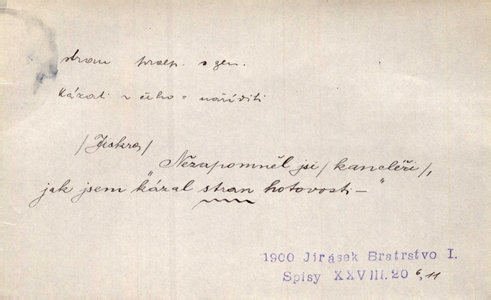 stran praep. s gen.
kázati z čeho = naříditi
/Jiskra/
Nezapomněl jsi /kancléři/,
jak jsem "kázal stran hotovosti –"
1900 Jirásek Bratrstvo I.
Spisy XXVIII. 20 6, 11